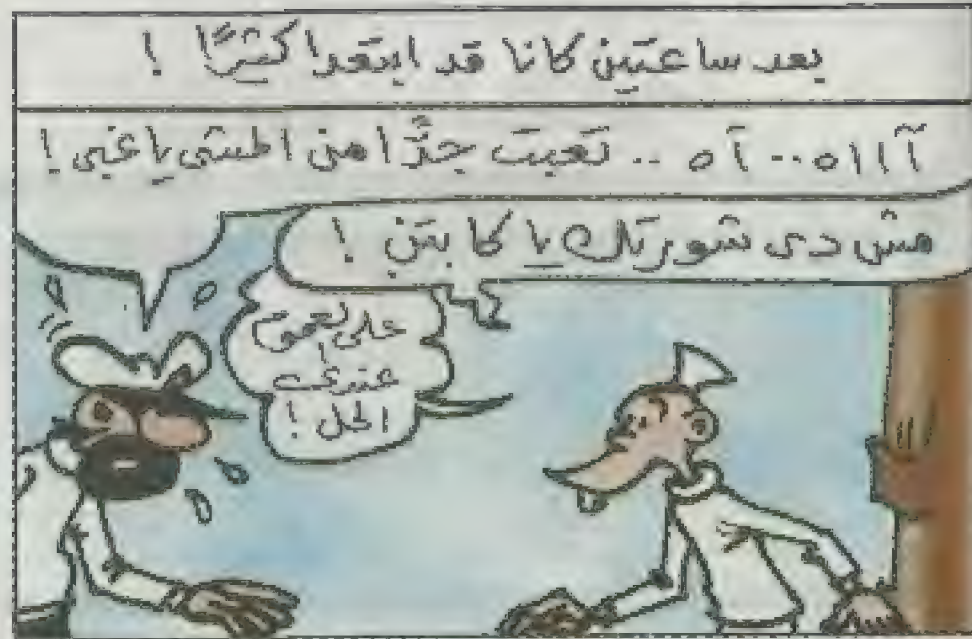 بعد ساعتين كانا قد ابتعدا كثيرًا !
آآااه .. آه .. تعبت جدًا من المشي يا غبي !
مش دى شورتك يا كابتن !
على لعموم
عندى
الحل !